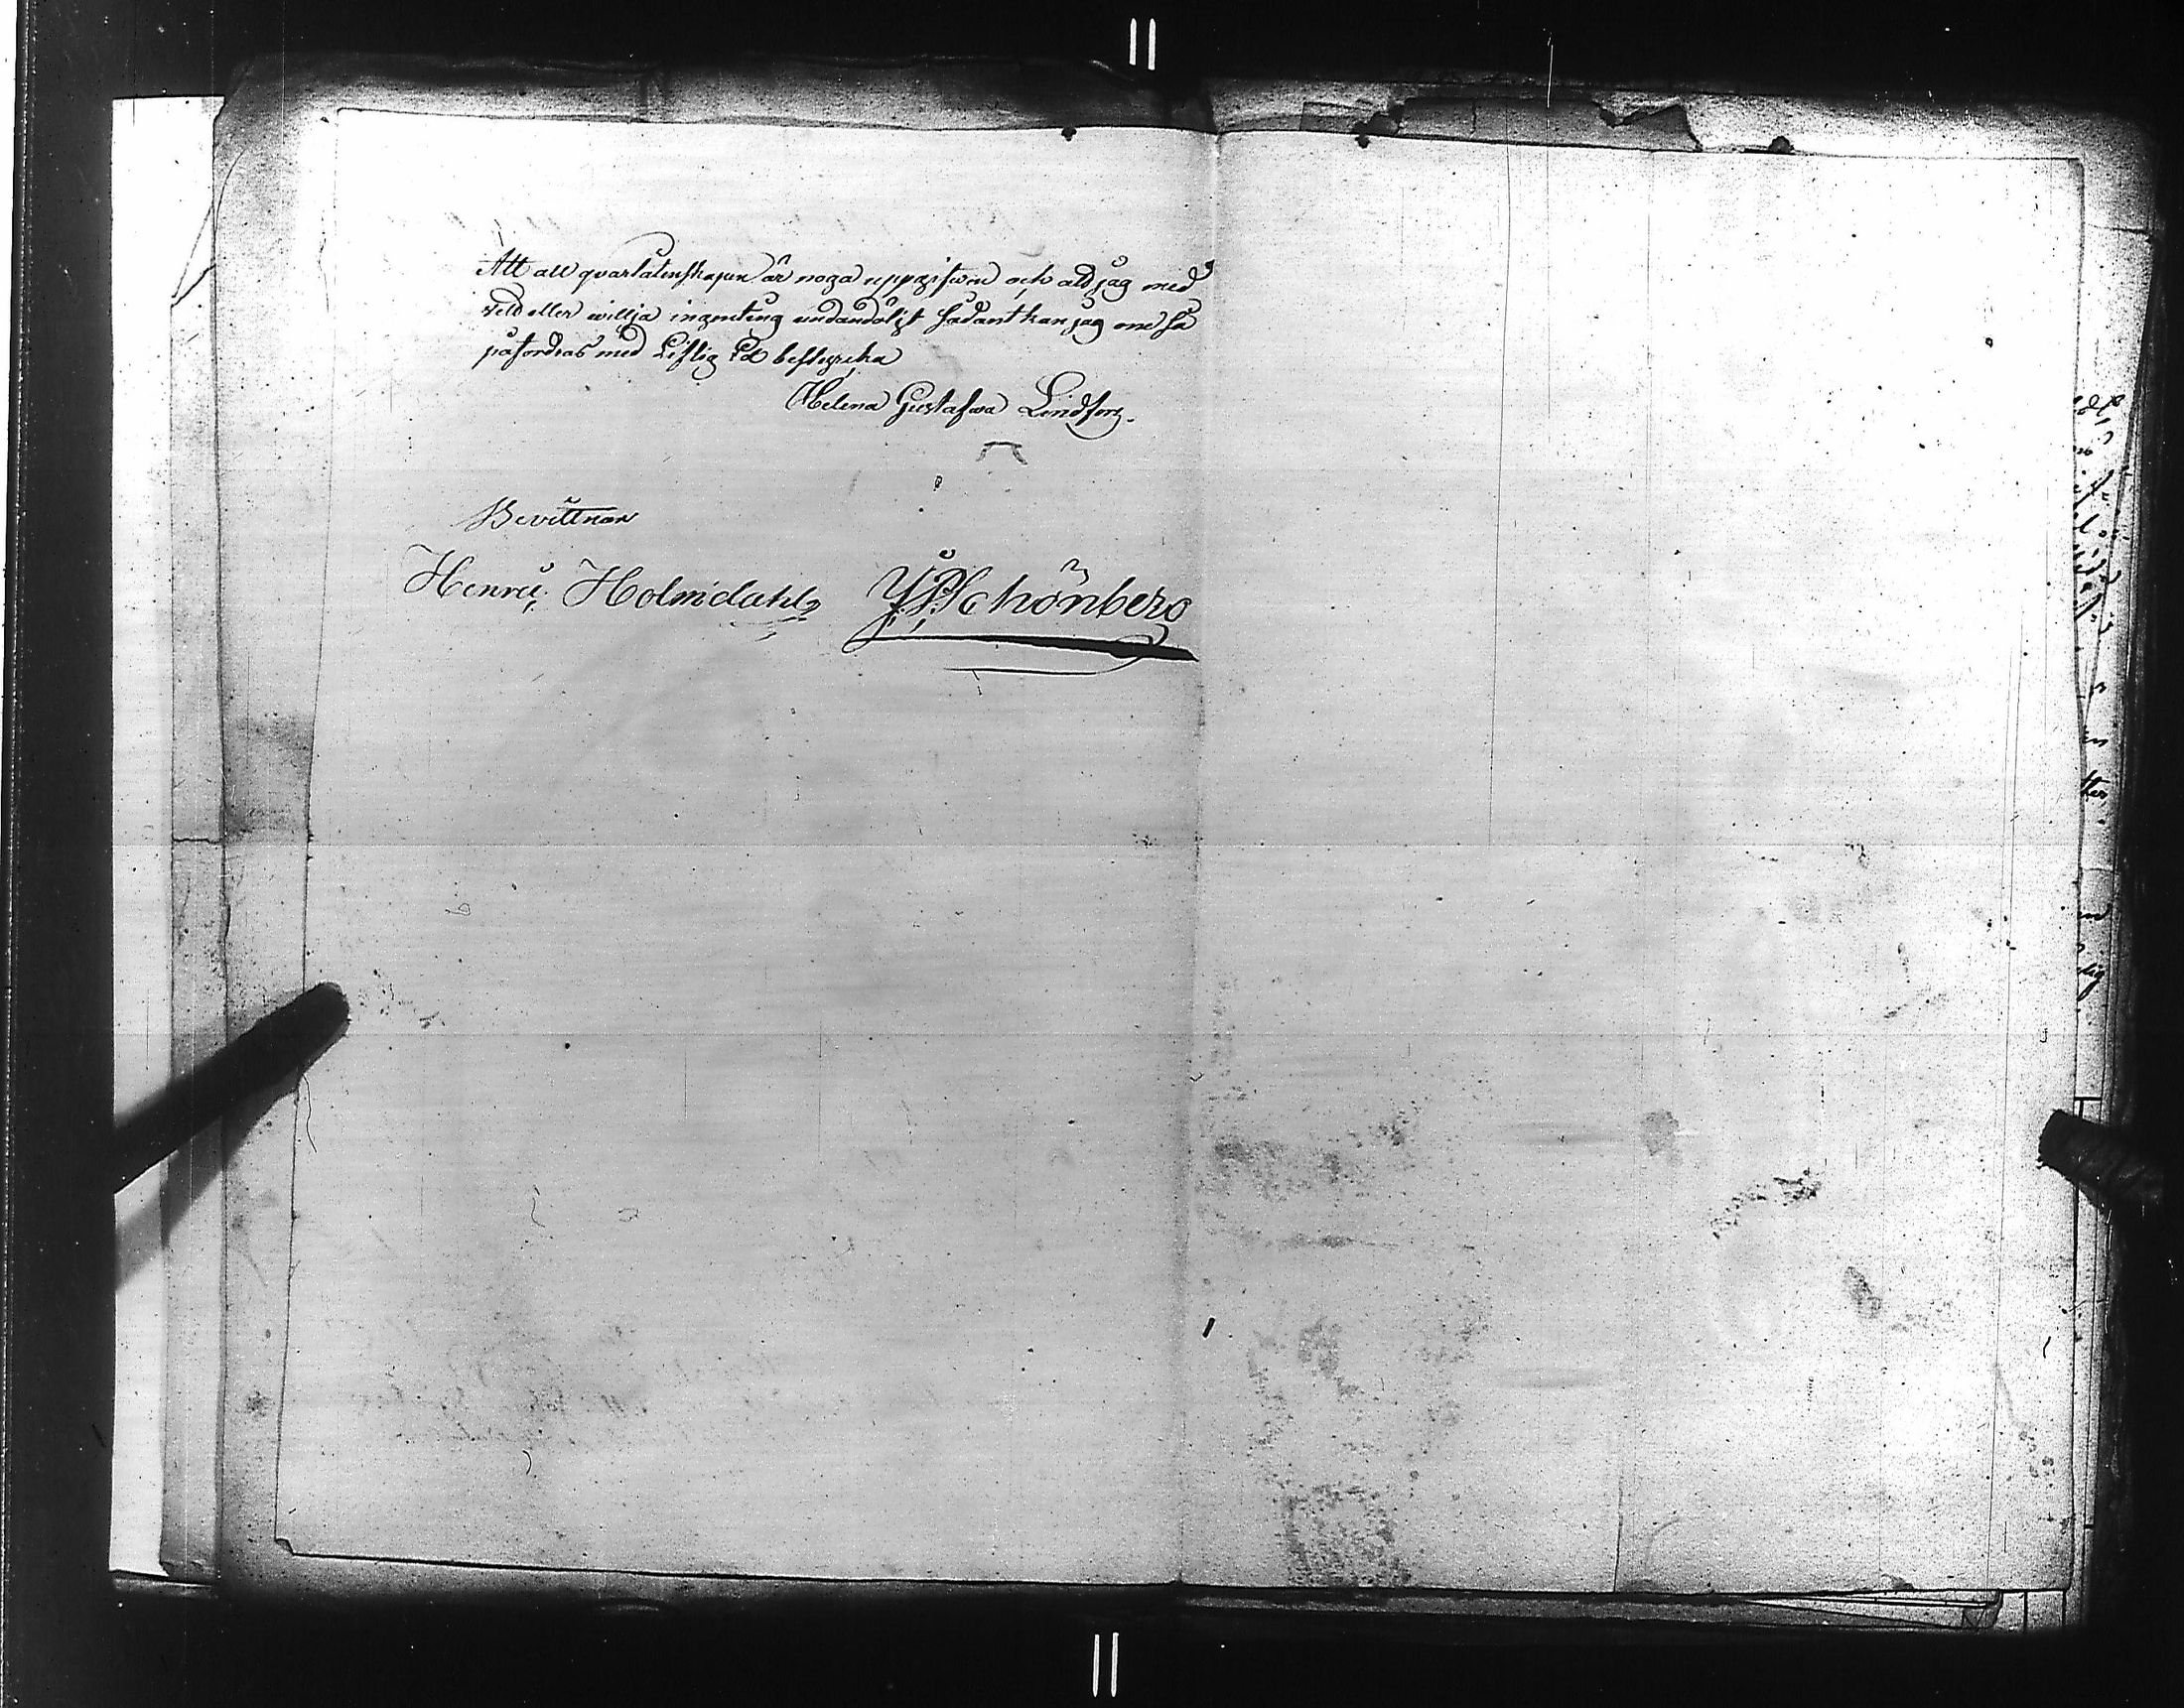 Att all qvarlåtenskapen är noga uppgifwen och att jag med
vett eller willja ingenting undandölgt sådant kan jag om så
påfordras med Liflig Ed bestyrcka
Helena Gustafwa Lindfors.
Bevittnar
Henric Holmdahl
Schönberg